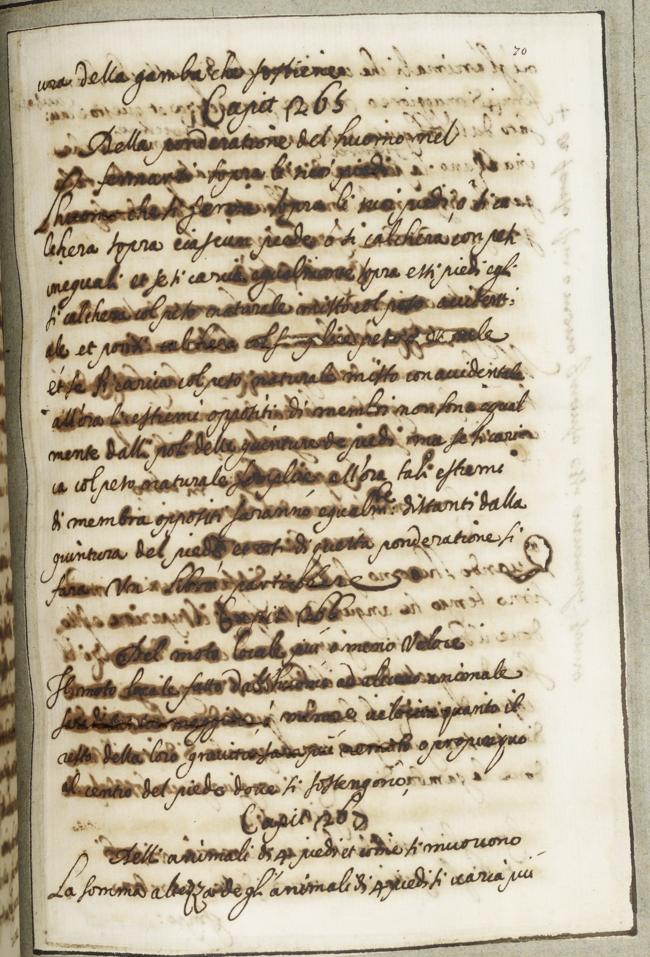 70
ura della gamba che sostiene
Capit 265
Della ponderatione del huomo nel
fermarsi sopra li suoi piedi
L'huomo che si ferma sopra li suoi piedi o si ca
lchera sopra ciascun piede ó si calchera con pesi
inequali et se si carica egualmente sopra essi piedi egli
si calchera col peso naturale misto col peso accidenti:
ale et calchera col semplice peso
et se si carica col peso naturale misto con accidentale
allora li estremi oppositi di membri non sono equal
mente dalli poli delle giunture de piedi ma se si
ca col peso naturale semplice allora tali estremi
di membra oppositi saranno egualmte: distanti dalla
giuntura del piede et cosi di questa ponderatione si
fara Un libro particolare
Capit 266
Del moto locale piu o meno Veloce
Il moto locale fatto dal huomo ad alcuno animale
sara di maggior ó minore velocita quanto il
della loro gravitá sara piú remoto o propinquo
al centro del piede dove si sostengono,
Capit 267
Delli animali di 4 piedi et come si muovono
La somma altezza degl'animali di 4 piedi si varia piú